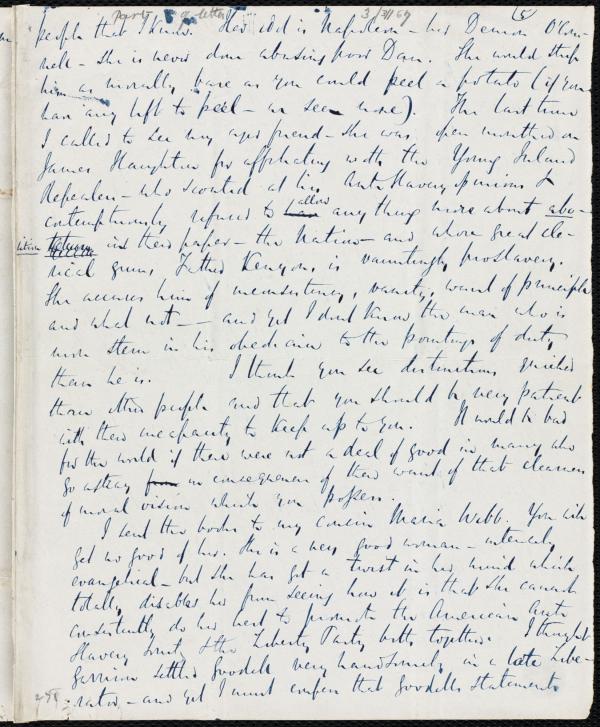 part of a letter 3/3/69 (5
people that I know. Her idol is Napoleon – her Demon O'Con-
nell – she is never done abusing poor Dan. She would strip
him as morally bare as you could peel a potato (if you
han any left to peel – we see none). The last time
I called to see my aged friend – she was open mouthed on
James Haughton for affiliating with the Young Ireland
Repealers – who scouted at his AntiSlavery opinions &
contemptuously refused to allow any thing more about abo-
lition in their paper – the Nation – and whose great cle-
rical genius Father Kenyon, is vauntingly proslavery.
She accuses him of inconsistency, vanity, want of principle
and what not — and yet I dont know the man who is
more stern in his obedience to the pointings of duty
than he is. I think you see distinctions quicker
than other people and that you should be very patient
with their incapacity to keep up to you. It would be bad
for the world if there were not a deal of good in many who
go astray from in consequence of their want of that clearness
of moral vision which you possess.
I sent the books to my cousin Maria Webb. You will
get no good of her. She is a very good woman – intensely
evangelical – but she has got a twist in her mind which
totally disables her from seeing how it is that she cannot
consistently do her best to promote the American Anti
Slavery Society & the Liberty Party both together. I thought
Garrison settled Goodell very handsomely in a late Libe-
rator – and yet I must confess that Goodells statements